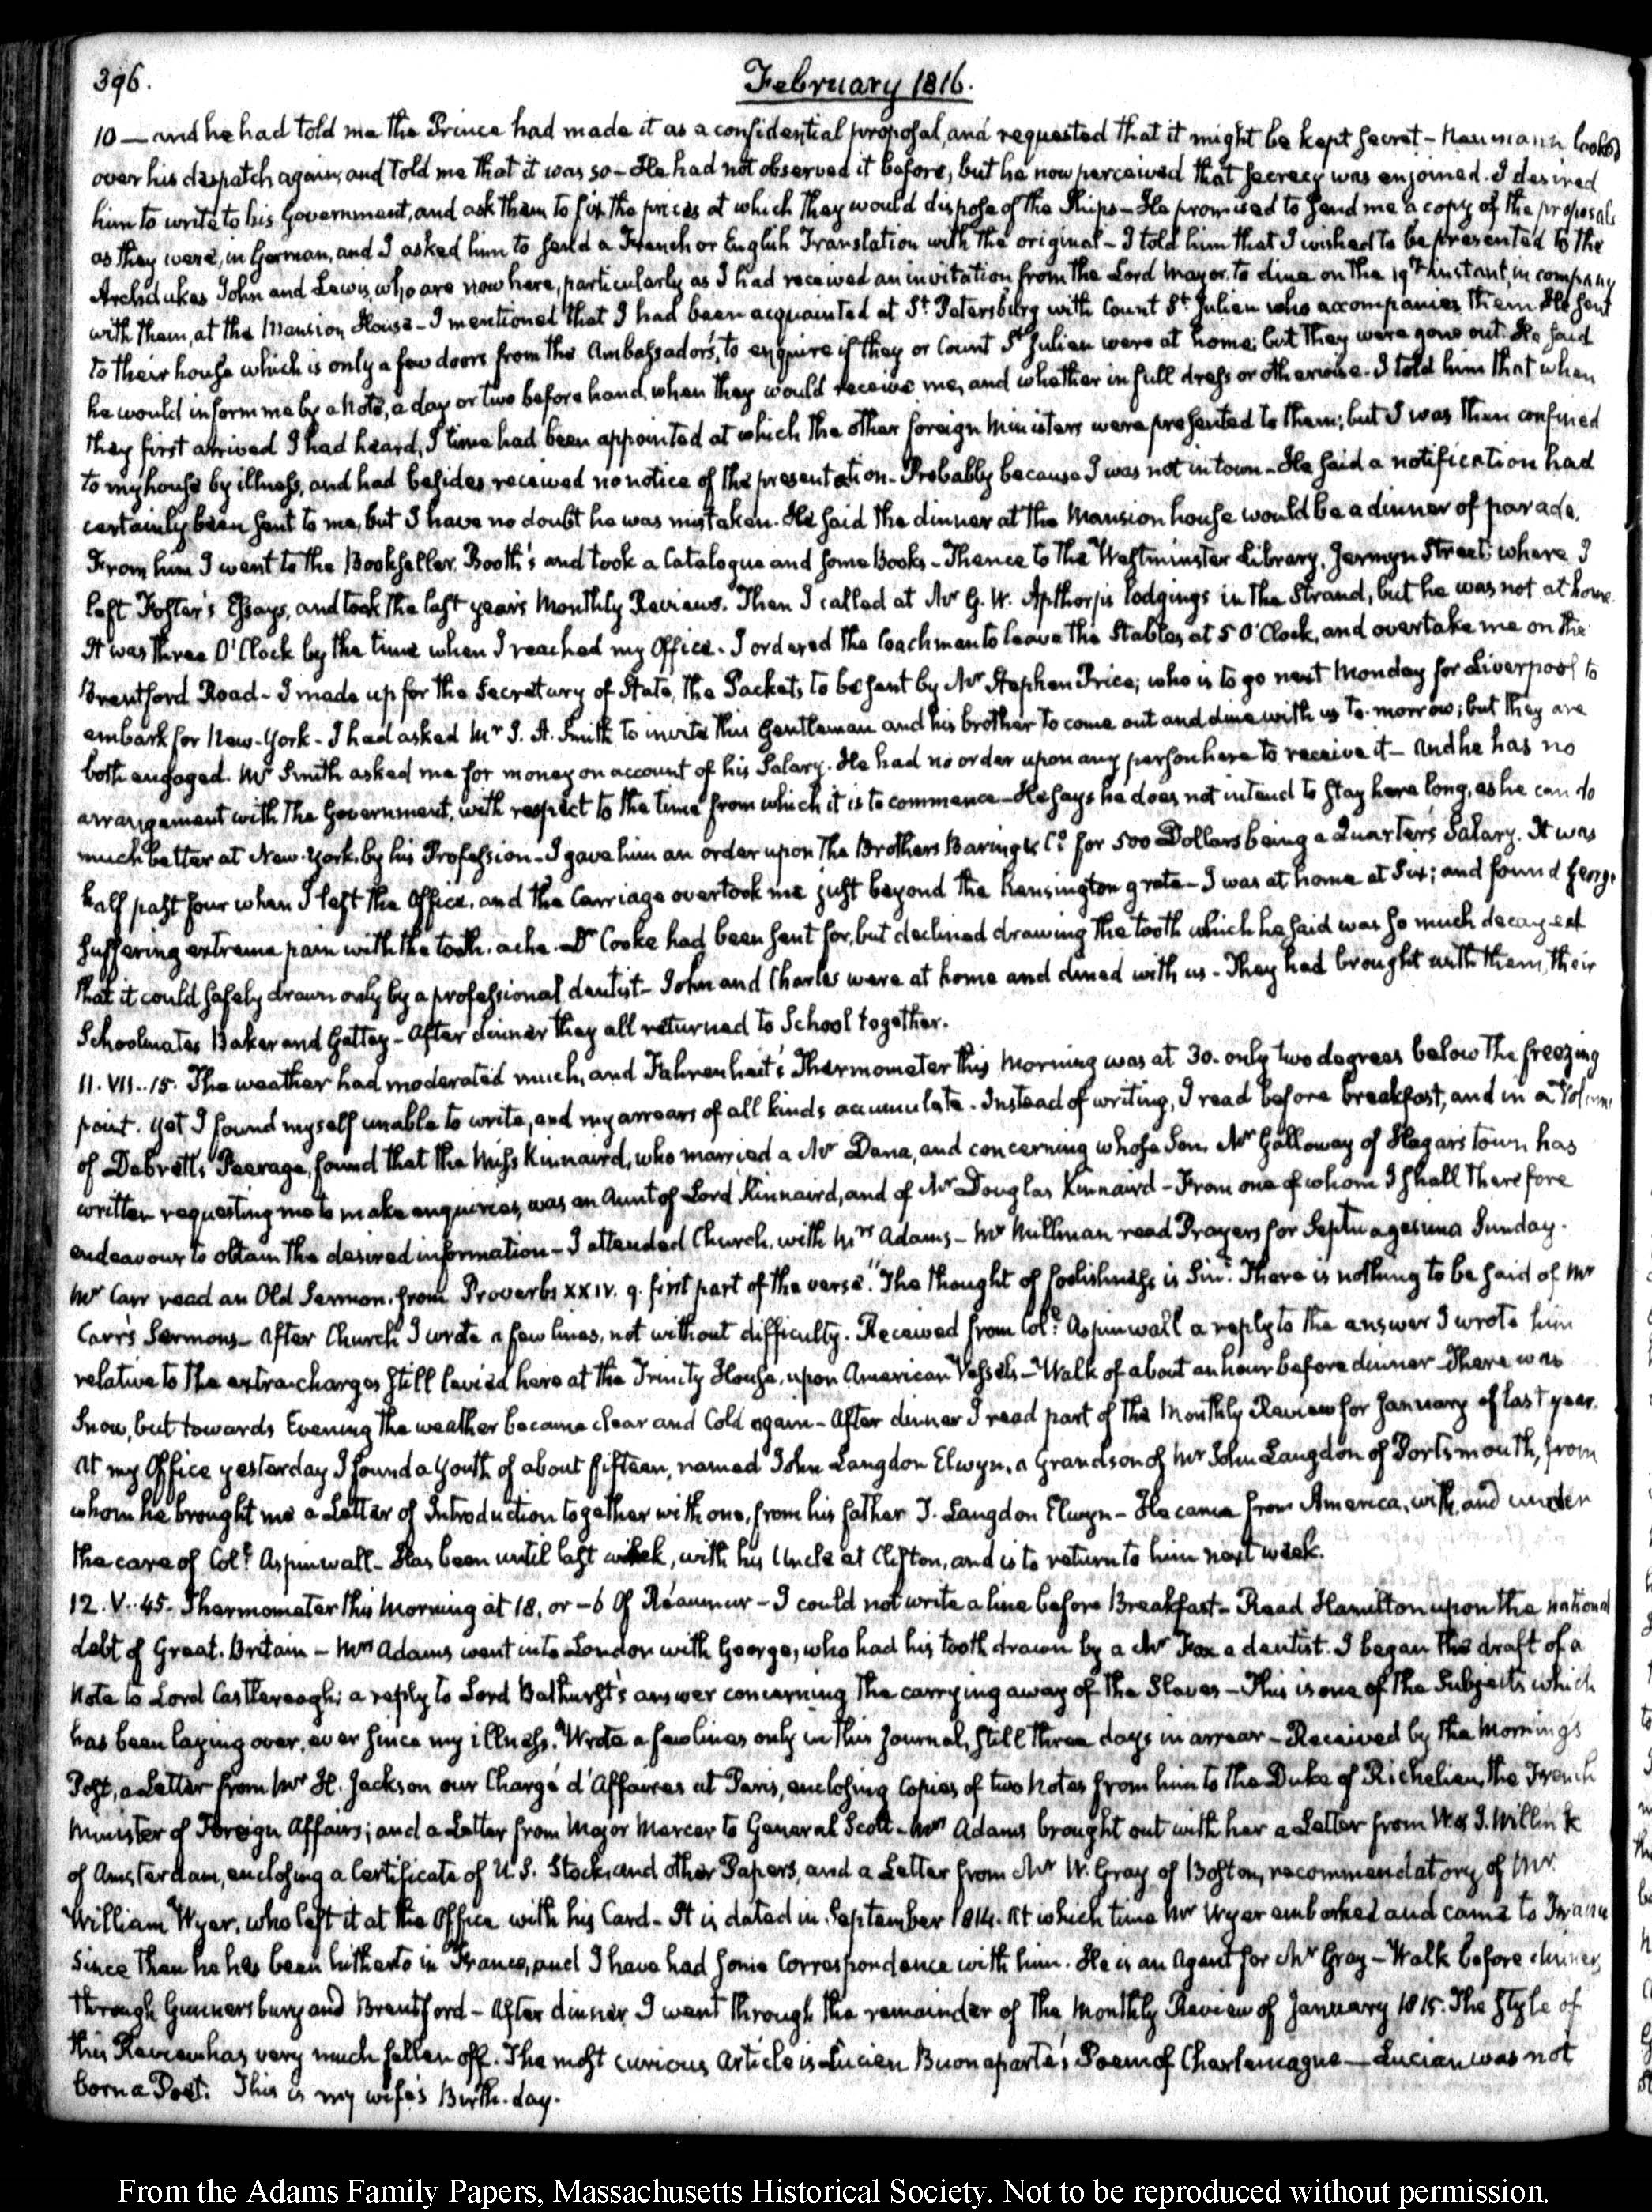 396.
February 1816.
10 — and he had told me the Prince had made it as a confidential proposal, and requested that it might be kept secret - Naumann looked
over his despatch again, and told me that it was so - He had not observed it before, but he now perceived that secrecy was enjoined. I desired
him to write to his Government, and ask them to fix the prices at which they would dispose of the Ships - He promised to send me a copy of the proposals
as they were, in German, and I asked him to send a French or English Translation with the original - I told him that I wished to be presented to the
Archdukes John and Lewis, who are now here, particularly as I had received an invitation from the Lord Mayor, to dine on the 19th instant, in company
with them, at the Mansion House - I mentioned that I had been acquainted at St Petersburg with Count St Julien who accompanies them. He sent
to their house which is only a few doors from the Ambassador's, to enquire if they or Count St Julien were at home; but they were gone out. He said
he would inform me by a Note, a day or two before hand, when they would receive me, and whether in full dress or otherwise. I told him that when
they first arrived I had heard, a time had been appointed at which the other foreign Ministers were presented to them; but I was then confined
to my house by illness, and had besides received no notice of the presentation - Probably because I was not in town - He said a notification had
certainly been sent to me, but I have no doubt he was mistaken. He said the dinner at the Mansion house would be a dinner of parade.
From him I went to the Bookseller Booth's and took a Catalogue and some Books - Thence to the Westminster Library, Jermyn Street; where I
left Foster's Essays, and took the last year's Monthly Reviews. Then I called at Mr G. W. Apthorp's lodgings in the Strand, but he was not at home.
It was three O'Clock by the time when I reached my Office - I ordered the Coachman to leave the Stables at 5 O'Clock, and overtake me on the
Brentford Road - I made up for the Secretary of State, the Packets to be sent by Mr Stephen Price; who is to go next Monday for Liverpool to
embark for New-York - I had asked Mr J. A. Smith to invite this Gentleman and his brother to come out and dine with us to-morrow; but they are
both engaged. Mr Smith asked me for money on account of his Salary. He had no order upon any person here to receive it - and he has no
arrangement with the Government, with respect to the time from which it is to commence - He says he does not intend to stay here long, as he can do
much better at New-York, by his Profession - I gave him an order upon the Brothers Baring & Co for 500 Dollars being a Quarter's Salary. It was
half past four when I left the Office, and the Carriage overtook me just beyond the Kensington grate - I was at home at Six; and found George
suffering extreme pain with the tooth-ache. Dr Cooke had been sent for, but declined drawing the tooth which he said was so much decayed
that it could safely drawn only by a professional dentist - John and Charles were at home and dined with us - They had brought with them, their
Schoolmates Baker and Gattey - After dinner they all returned to School together.
11. VII..15. The weather had moderated much, and Fahrenheit's Thermometer this Morning was at 30. only two degrees below the freezing
point. yet I found myself unable to write, and my arrears of all kinds accumulate. Instead of writing, I read before breakfast, and in a Volume
of Debrett's Peerage, found that the Miss Kinnaird, who married a Mr Dana, and concerning whose Son Mr Galloway of Hagar's town has
written requesting me to make enquiries, was an Aunt of Lord Kinnaird, and of Mr Douglas Kinnaird - From one of whom I shall therefore
endeavour to obtain the desired information - I attended Church, with Mrs Adams - Mr Millman read Prayers for Septuagesima Sunday.
Mr Carr read an Old Sermon, from Proverbs XXIV. 9. first part of the verse. "The thought of foolishness is Sin". There is nothing to be said of Mr
Carr's Sermons - After Church I wrote a few lines, not without difficulty. Received from Coll. Aspinwall a reply to the answer I wrote him
relative to the extra-charges still levied here at the Trinity House, upon American Vessels - Walk of about an hour before dinner - There was
Snow, but towards Evening the weather became clear and Cold again - After dinner I read part of the Monthly Review for January of last year.
At my Office yesterday I found a Youth of about fifteen, named John Langdon Elwyn, a Grandson of Mr John Langdon of Portsmouth, from
whom he brought me a Letter of Introduction together with one, from his father T. Langdon Elwyn - He came from America, with, and under
the care of Coll. Aspinwall - Has been until last week, with his Uncle at Clifton, and is to return to him next week.
12. V..45. Thermometer this Morning at 18, or -6 Of Réaumur - I could not write a line before Breakfast - Read Hamilton upon the national
debt of Great-Britain - Mrs Adams went into London with George, who had his tooth drawn by a Mr Fox a dentist. I began the draft of a
Note to Lord Castlereagh; a reply to Lord Bathurst's answer concerning the carrying away of the Slaves - This is one of the Subjects which
has been laying over, ever since my illness. Wrote a few lines only in this Journal, still three days in arrear - Received by the Morning's
Post, a Letter from Mr H. Jackson our Chargé d'Affaires at Paris, enclosing Copies of two Notes from him to the Duke of Richelieu, the French
Minister of Foreign Affairs; and a Letter from Major Mercer to General Scott - Mrs Adams brought out with her a Letter from W. & J. Willink
of Amsterdam, enclosing a Certificate of U. S. Stock, and other Papers, and a Letter from Mr W. Gray of Boston, recommendatory of Mr
William Wyer, who left it at the Office with his Card - It is dated in September 1814. At which time Mr Wyer embarked and came to France
Since then he has been hitherto in France, and I have had some Correspondence with him. He is an Agent for Mr Gray - Walk before dinner
through Gunnersbury and Brentford - After dinner I went through the remainder of the Monthly Review of January 1815. The style of
this Review has very much fallen off. The most curious Article is Lucien Buonaparte's Poem of Charlemagne — Lucian was not
born a Poet. This is my wife's Birth-day.
From the Adams Family Papers, Massachusetts Historical Society. Not to be reproduced without permission.